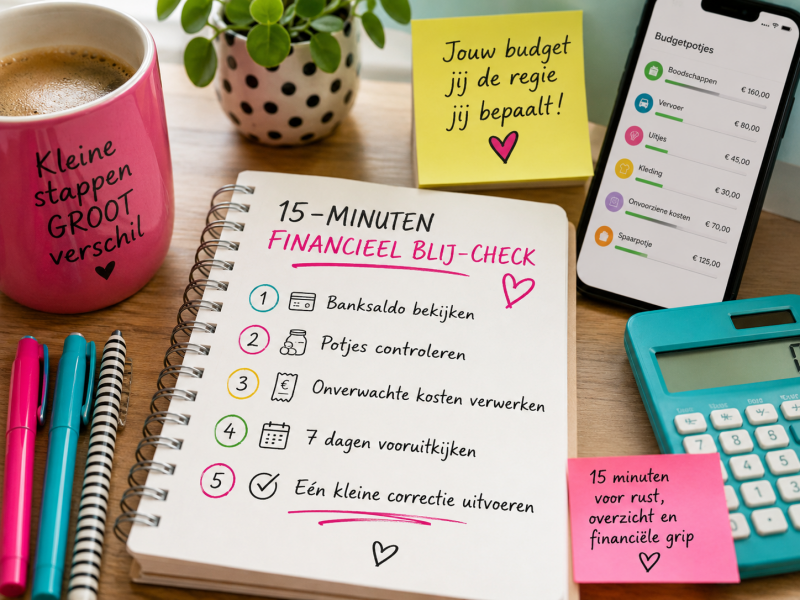 Kleine
stappen
GROOT
verschil
Jouw budget
jij de regie
jij bepaalt!
Budgetpotjes
Boodschappen
€ 160,00
Vervoer
€ 80,00
Uitjes
€ 45,00
Kleding
€ 30,00
Onvoorziene kosten
€ 70,00
Spaarpotje
€ 125,00
15-MINUTEN
FINANCIEEL BLIJ-CHECK
1 Banksaldo bekijken
2 Potjes controleren
3 € Onverwachte kosten verwerken
4 7 dagen vooruitkijken
5 Eén kleine correctie uitvoeren
7 8
4 5
1 3
0
15 minuten
voor rust,
overzicht en
financiële grip